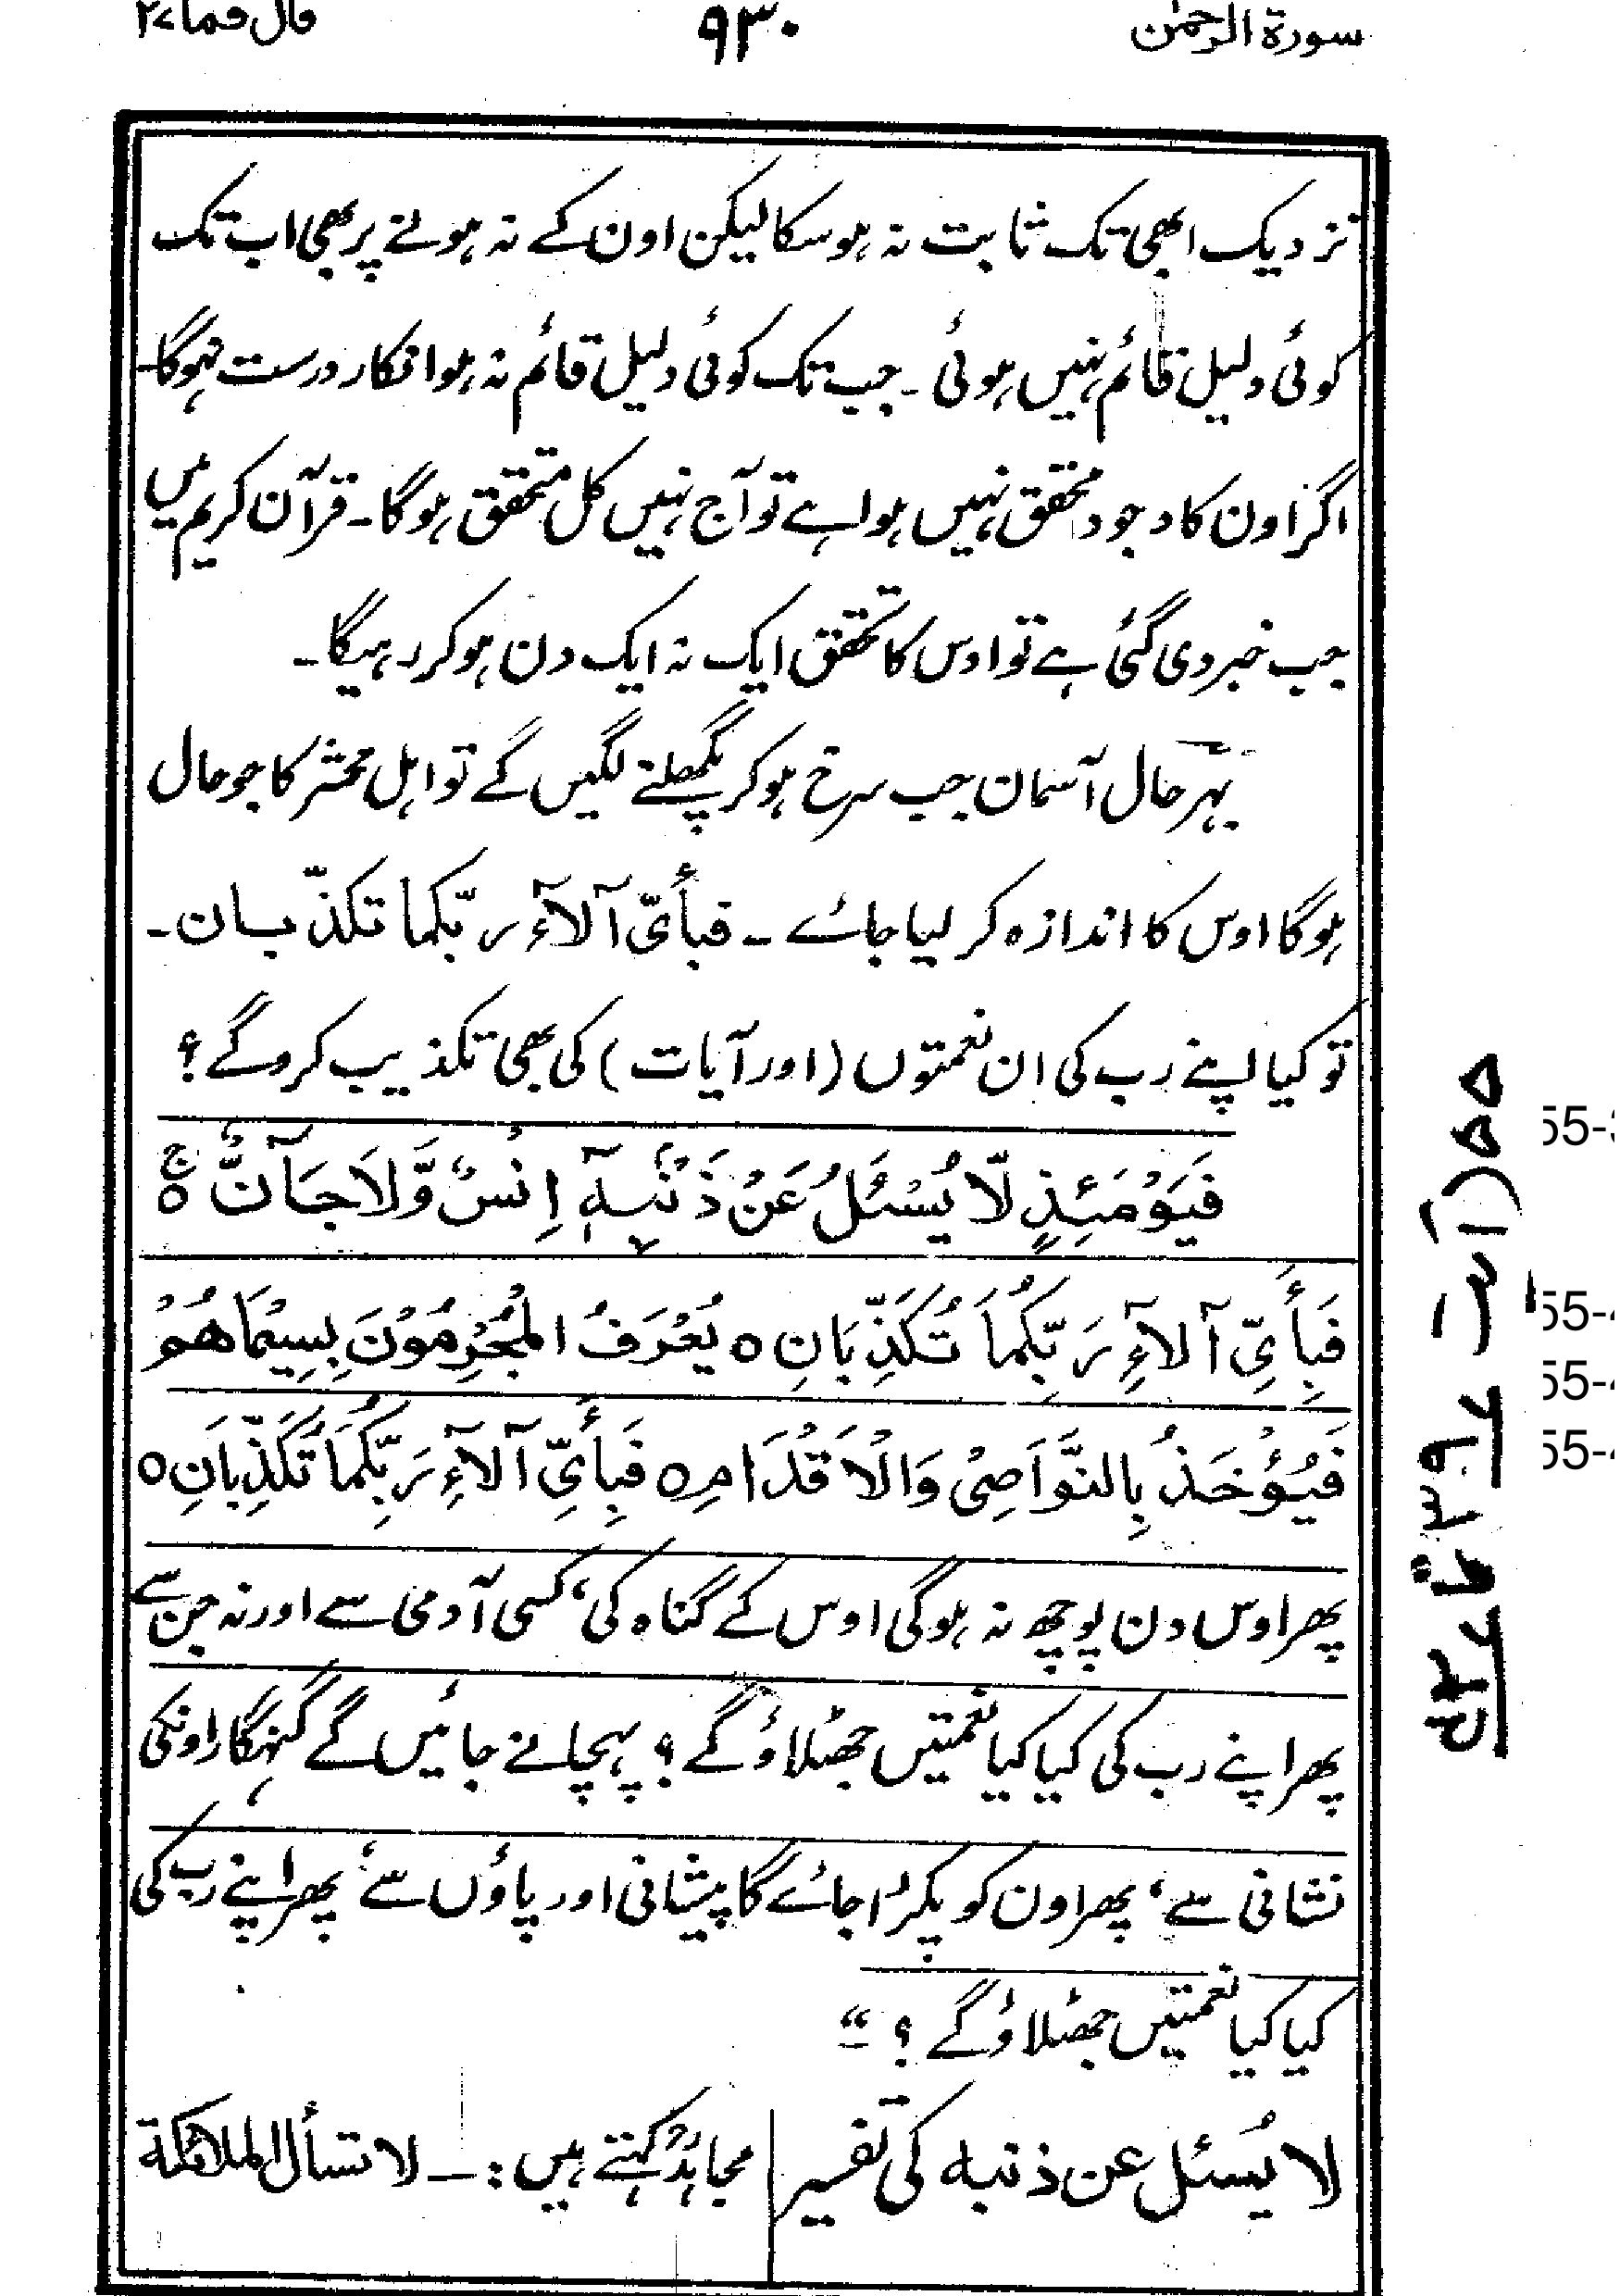 سورۃ الرحمٰن ۹۳۰ قال فما ۲۷
نزدیک ابھی تک ثابت نہ ہو سکا لیکن اون کے نہ ہونے پر بھی اب تک
کوئی دلیل قائم نہیں ہوئی ۔ جب تک کوئی دلیل قائم نہ ہو انکار درست نہوگا۔
اگر اون کا وجود متحقق نہیں ہوا ہے تو آج نہیں کل متحقق ہوگا۔ قرآن کریم میں
جب خبر دی گئی ہے تو اوس کا تحقق ایک نہ ایک دن ہو کر رہیگا۔
بہر حال آسمان جب سرخ ہو کر پگھلنے لگیں گے تو اہل محشر کا جو حال
ہوگا اوس کا اندازہ کر لیا جائے ۔ فبأیّ آلآء ربّکما تکذّبان۔
تو کیا اپنے رب کی ان نعمتوں (اور آیات) کی بھی تکذیب کروگے؟
فَیَوْمَئِذٍ لَّا یُسْئَلُ عَنْ ذَنْۢبِہٖٓ اِنْسٌ وَّلَا جَآنٌّ ۚ ہ
فَبِأَیِّ آلآءِ رَبِّکُمَا تُکَذِّبَانِ ہ یُعْرَفُ الْمُجْرِمُوْنَ بِسِیْمَاھُمْ
فَیُؤْخَذُ بِالنَّوَاصِیْ وَالْاَقْدَامِ ہ فَبِأَیِّ آلآءِ رَبِّکُمَا تُکَذِّبَانِ ہ
پھر اوس دن پوچھ نہ ہوگی اوس کے گناہ کی، کسی آدمی سے اور نہ جن سے
پھر اپنے رب کی کیا کیا نعمتیں جھٹلاؤ گے؟ پہچانے جائیں گے گنہگار اونکی
نشانی سے، پھر اون کو پکڑا جائے گا پیشانی اور پاؤں سے، پھر اپنے رب کی
کیا کیا نعمتیں جھٹلاؤ گے؟ “
لا یُسئل عن ذنبہ کی تفسیر | مجاہدؒ کہتے ہیں :۔ لا تسأل الملائکة
۵۵ (آیت ۳۹ تا ۴۲)
55-
55-
55-
55-